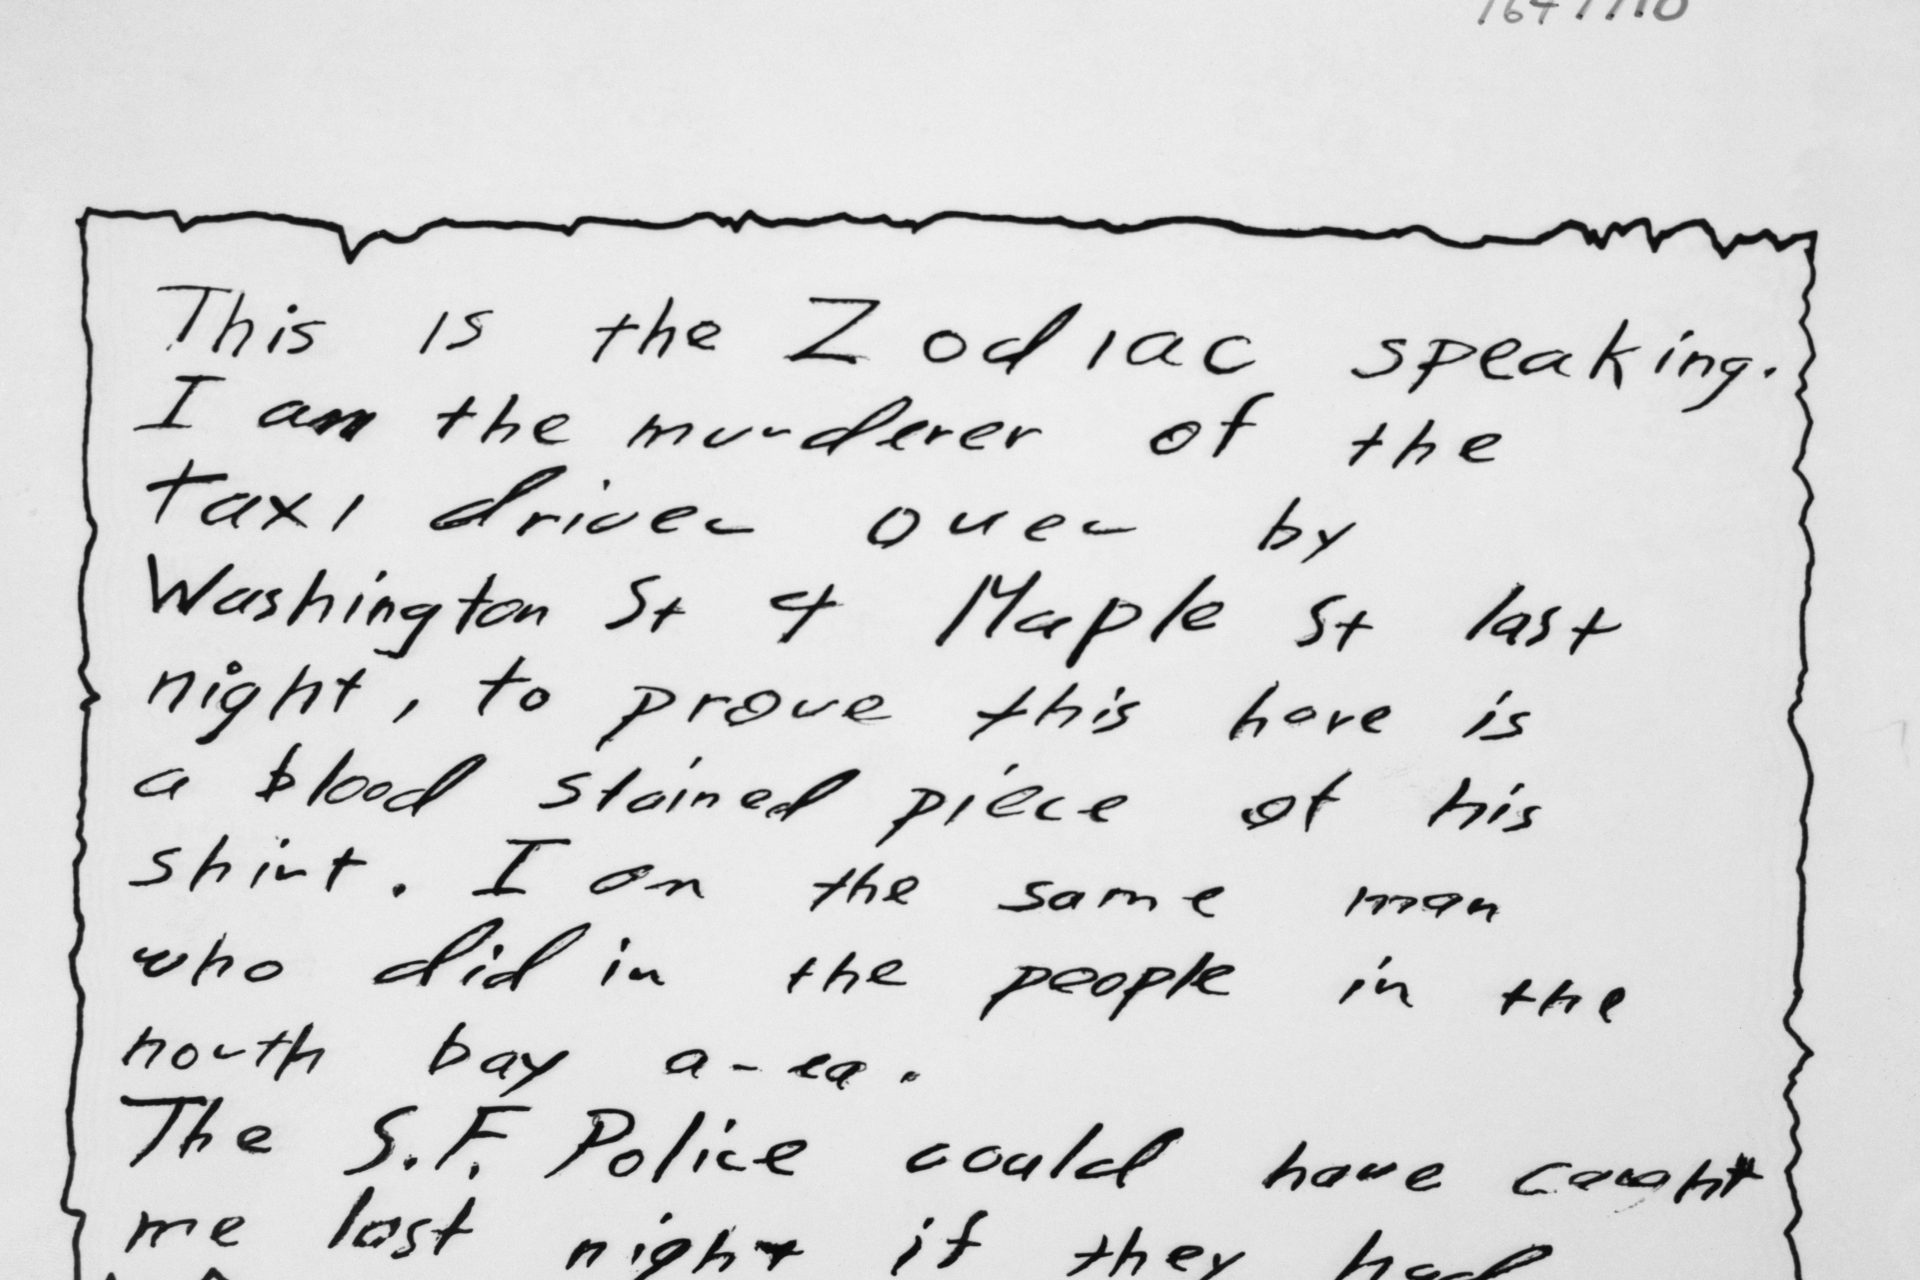 This is the Zodiac speaking.
I am the murderer of the
taxi driver over by
Washington St & Maple St last
night, to prove this here is
a blood stained piece of his
shirt. I am the same man
who did in the people in the
north bay area.
The S.F. Police could have caught
me last night if they had